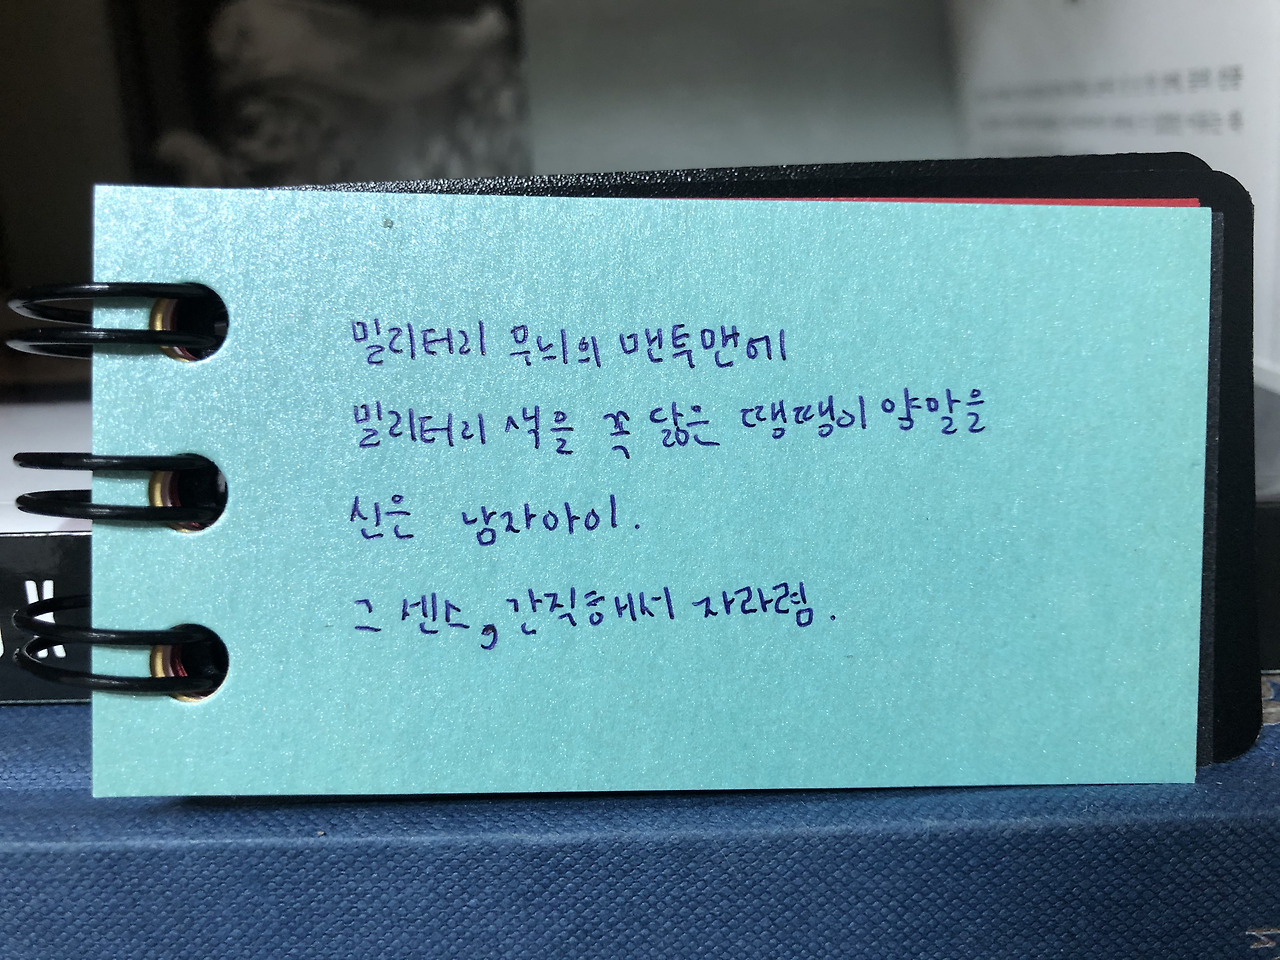 밀리터리 무늬의 맨투맨에
밀리터리 색을 꼭 닮은 땡땡이 양말을
신은 남자아이.
그 센스, 간직해서 자라렴.